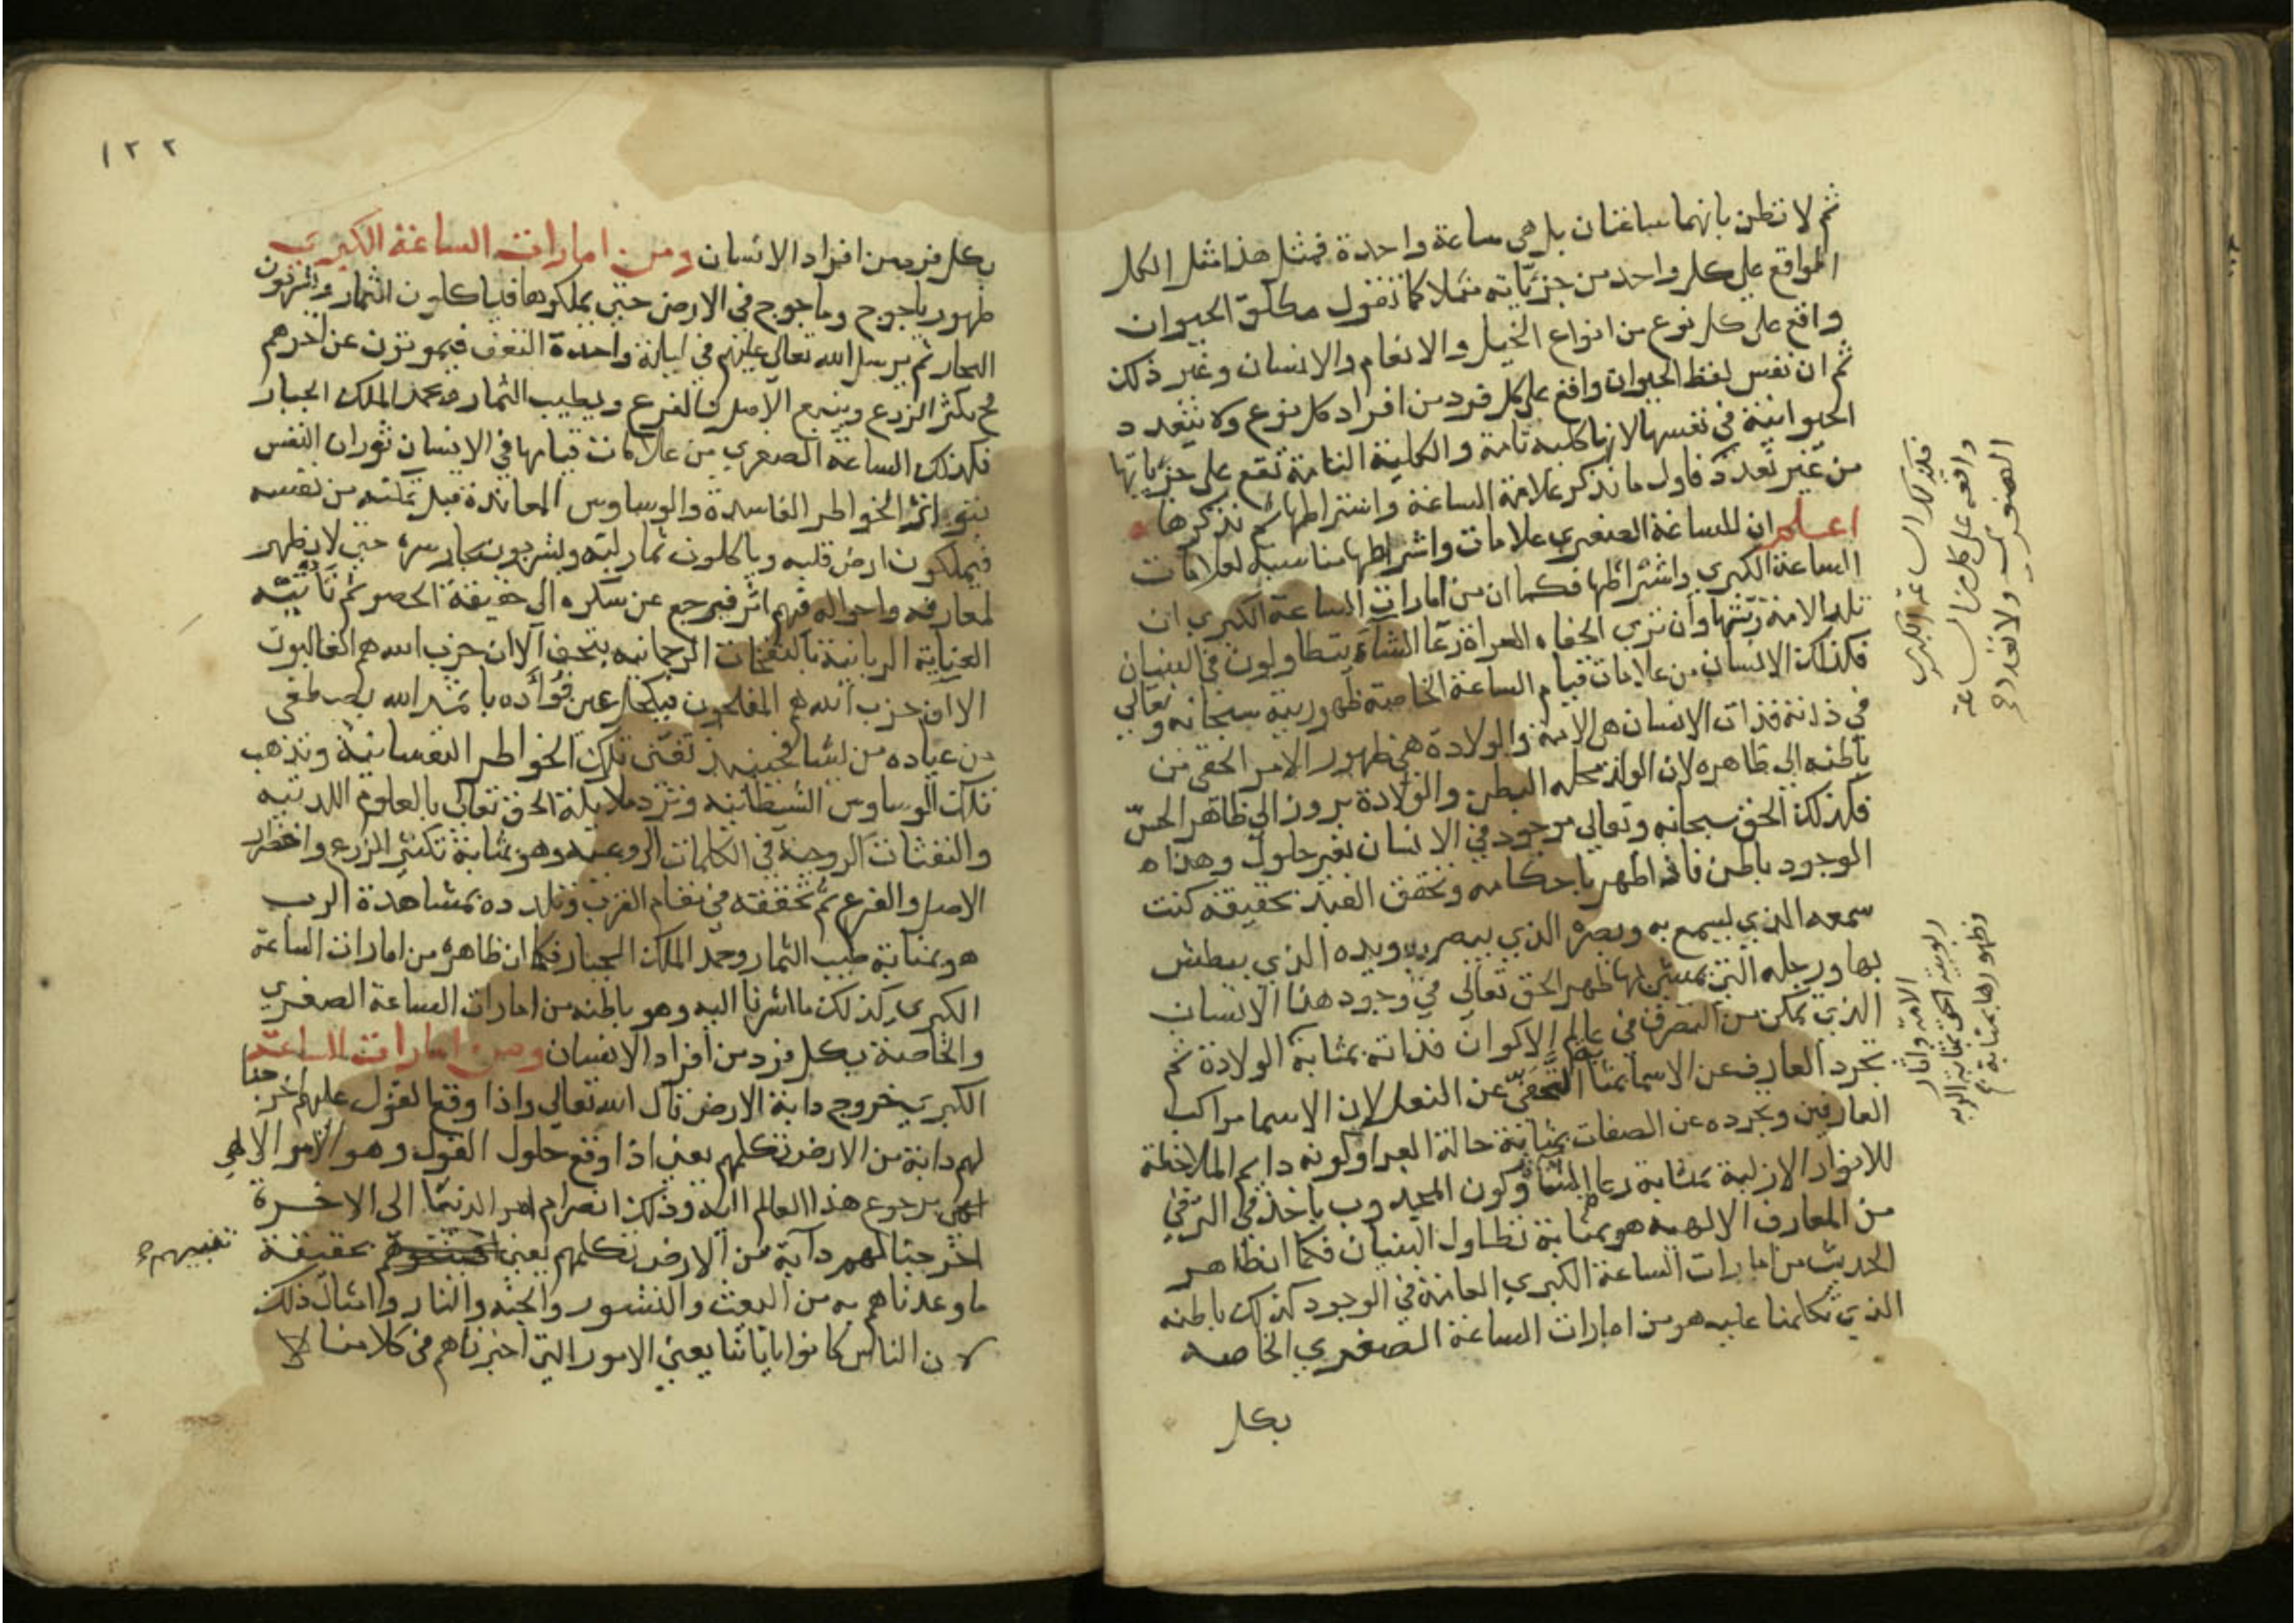 ثم لا تظن بانهما ساعتان بل هى ساعة واحدة فمثل هذا مثل الكل
الواقع علي كل واحد من جزئياته مثلا كما تقول مطلق الحيوان
واقع على كل نوع من انواع الخيل والانعام والانسان وغير ذلك
ثم ان نفس لفظ الحيوان واقع على كل فرد من افراد كل نوع ولا يتعدد
الحيوانية في نفسها لانها كلية تامة والكلية التامة تقع على جزياتها
من غير تعدد فاول ما نذكر علامة الساعة واشتراطها ثم نذكرها
اعلم ان للساعة الصغري علامات واشراطها مناسبة لعلامات
الساعة الكبري واشراطها فكما ان من امارات الساعة الكبري ان
تلد الامة ربتها وان تري الحفاه العراة رعا الشاء يتطاولون في البنيان
فكذلك الانسان من علامات قيام الساعة الخاصة ظهور ربيته سبحانه وتعالي
في ذاته فذات الانسان هى الامة والولادة هي ظهور الامر الحقي من
باطنه الي ظاهره لان الولد محله البطن والولادة بروز الي ظاهر الحس
فكذلك الحق سبحانه وتعالي موجود في الانسان بغير حلول وهذاه
الوجود باطن فاذا ظهر باحكامه وتحقق العبد بحقيقة كنت
سمعه الذي يسمع به وبصره الذي يبصر به ويده الذي يبطش
بها ورجله التي يمشي بها ظهر الحق تعالي في وجود هذا الانسان
الذي تمكن من التصرف في عالم الاكوان فذاته بمثابة الولادة ثم
تجرد العارف عن الاسما بمثابة التحفي عن النعل لان الاسما مراكب
العارفين وتجرده عن الصفات بمثابة حالة العراة وكونه دايم الملاحظة
للانوار الازلية بمثابة رعا الشا وكون المجدوب ياخذ في الترقي
من المعارف الالهيه هو بمثابة تطاول البنيان فكما ان ظاهر
الحديث من امارات الساعة الكبري العامة في الوجود كذلك باطنه
الذي تكلمنا عليه هو من امارات الساعة الصغري الخاصه
بكل
فكذلك الساعة الكبرى
واقعة على كل من الساعة
الصغرى ولا تعدد
الامة واثار
ربوبية الحق بمثابة الربه
وظهورها بمثابة
١٢٢
بكل فرد من افراد الانسان ومن امارات الساعة الكبرى
ظهور ياجوج وماجوج في الارض حتى يملكوها فياكلون الثمار ويشربون
البحار ثم يرسل الله تعالى عليهم في ليلة واحدة النغف فيموتون عن اخرهم
فح يكثر الزرع وينبع الاصل والفرع ويطيب الثمار ويحمد الملك الجبار
فكذلك الساعة الصغري من علامات قيامها في الانسان ثوران النفس
بتواتر الخواطر الفاسدة والوساوس المعاندة قبل تمكنه من نفسه
فيملكون ارض قلبه وياكلون ثمار لبه ويشربون بحار سره حتى لا يظهر
لمعارفه واحواله فيهم اثر فيرجع عن سكره الي حقيقة الحصر ثم تاتيه
العناية الربانية بالنفحات الرحمانيه بتحف الا ان حزب الله هم الغالبون
الا ان حزب الله هم المفلحون فيكحل عين فؤاده باثمد الله يصطفى
من عباده من يشا فحينئذ تفنى تلك الخواطر النفسانية وتذهب
تلك الوساوس الشيطانيه وترد ملايكة الحق تعالى بالعلوم اللدنيه
والنفثات الروحية في الكلمات الروعيه وهو بمثابة تكثير الزرع واخضرار
الاصل والفرع ثم تحققه في مقام القرب وتلدده بمشاهدة الرب
هو بمثابة طيب الثمار وحمد الملك الجبار فكما ان ظاهره من امارات الساعة
الكبرى كذلك ما اشرنا اليه وهو باطنه من امارات الساعة الصغري
والخاصة بكل فرد من افراد الانسان ومن امارات الساعة
الكبرى خروج دابة الارض قال الله تعالى واذا وقع القول عليهم اخرجنا
لهم دابة من الارض تكلمهم يعني اذا وقع حلول القول وهو الامر الالهي
برجوع هذا العالم اليه وذلك انصرام امر الدنيا الى الاخرة
اخرجنا لهم دابة من الارض تكلمهم يعني بحقيقة
ما وعدناهم به من البعث والنشور والجنة والنار وامثال ذلك
لان الناس كانوا باياتنا يعني الامور التي اخبرناهم في كلامنا لا